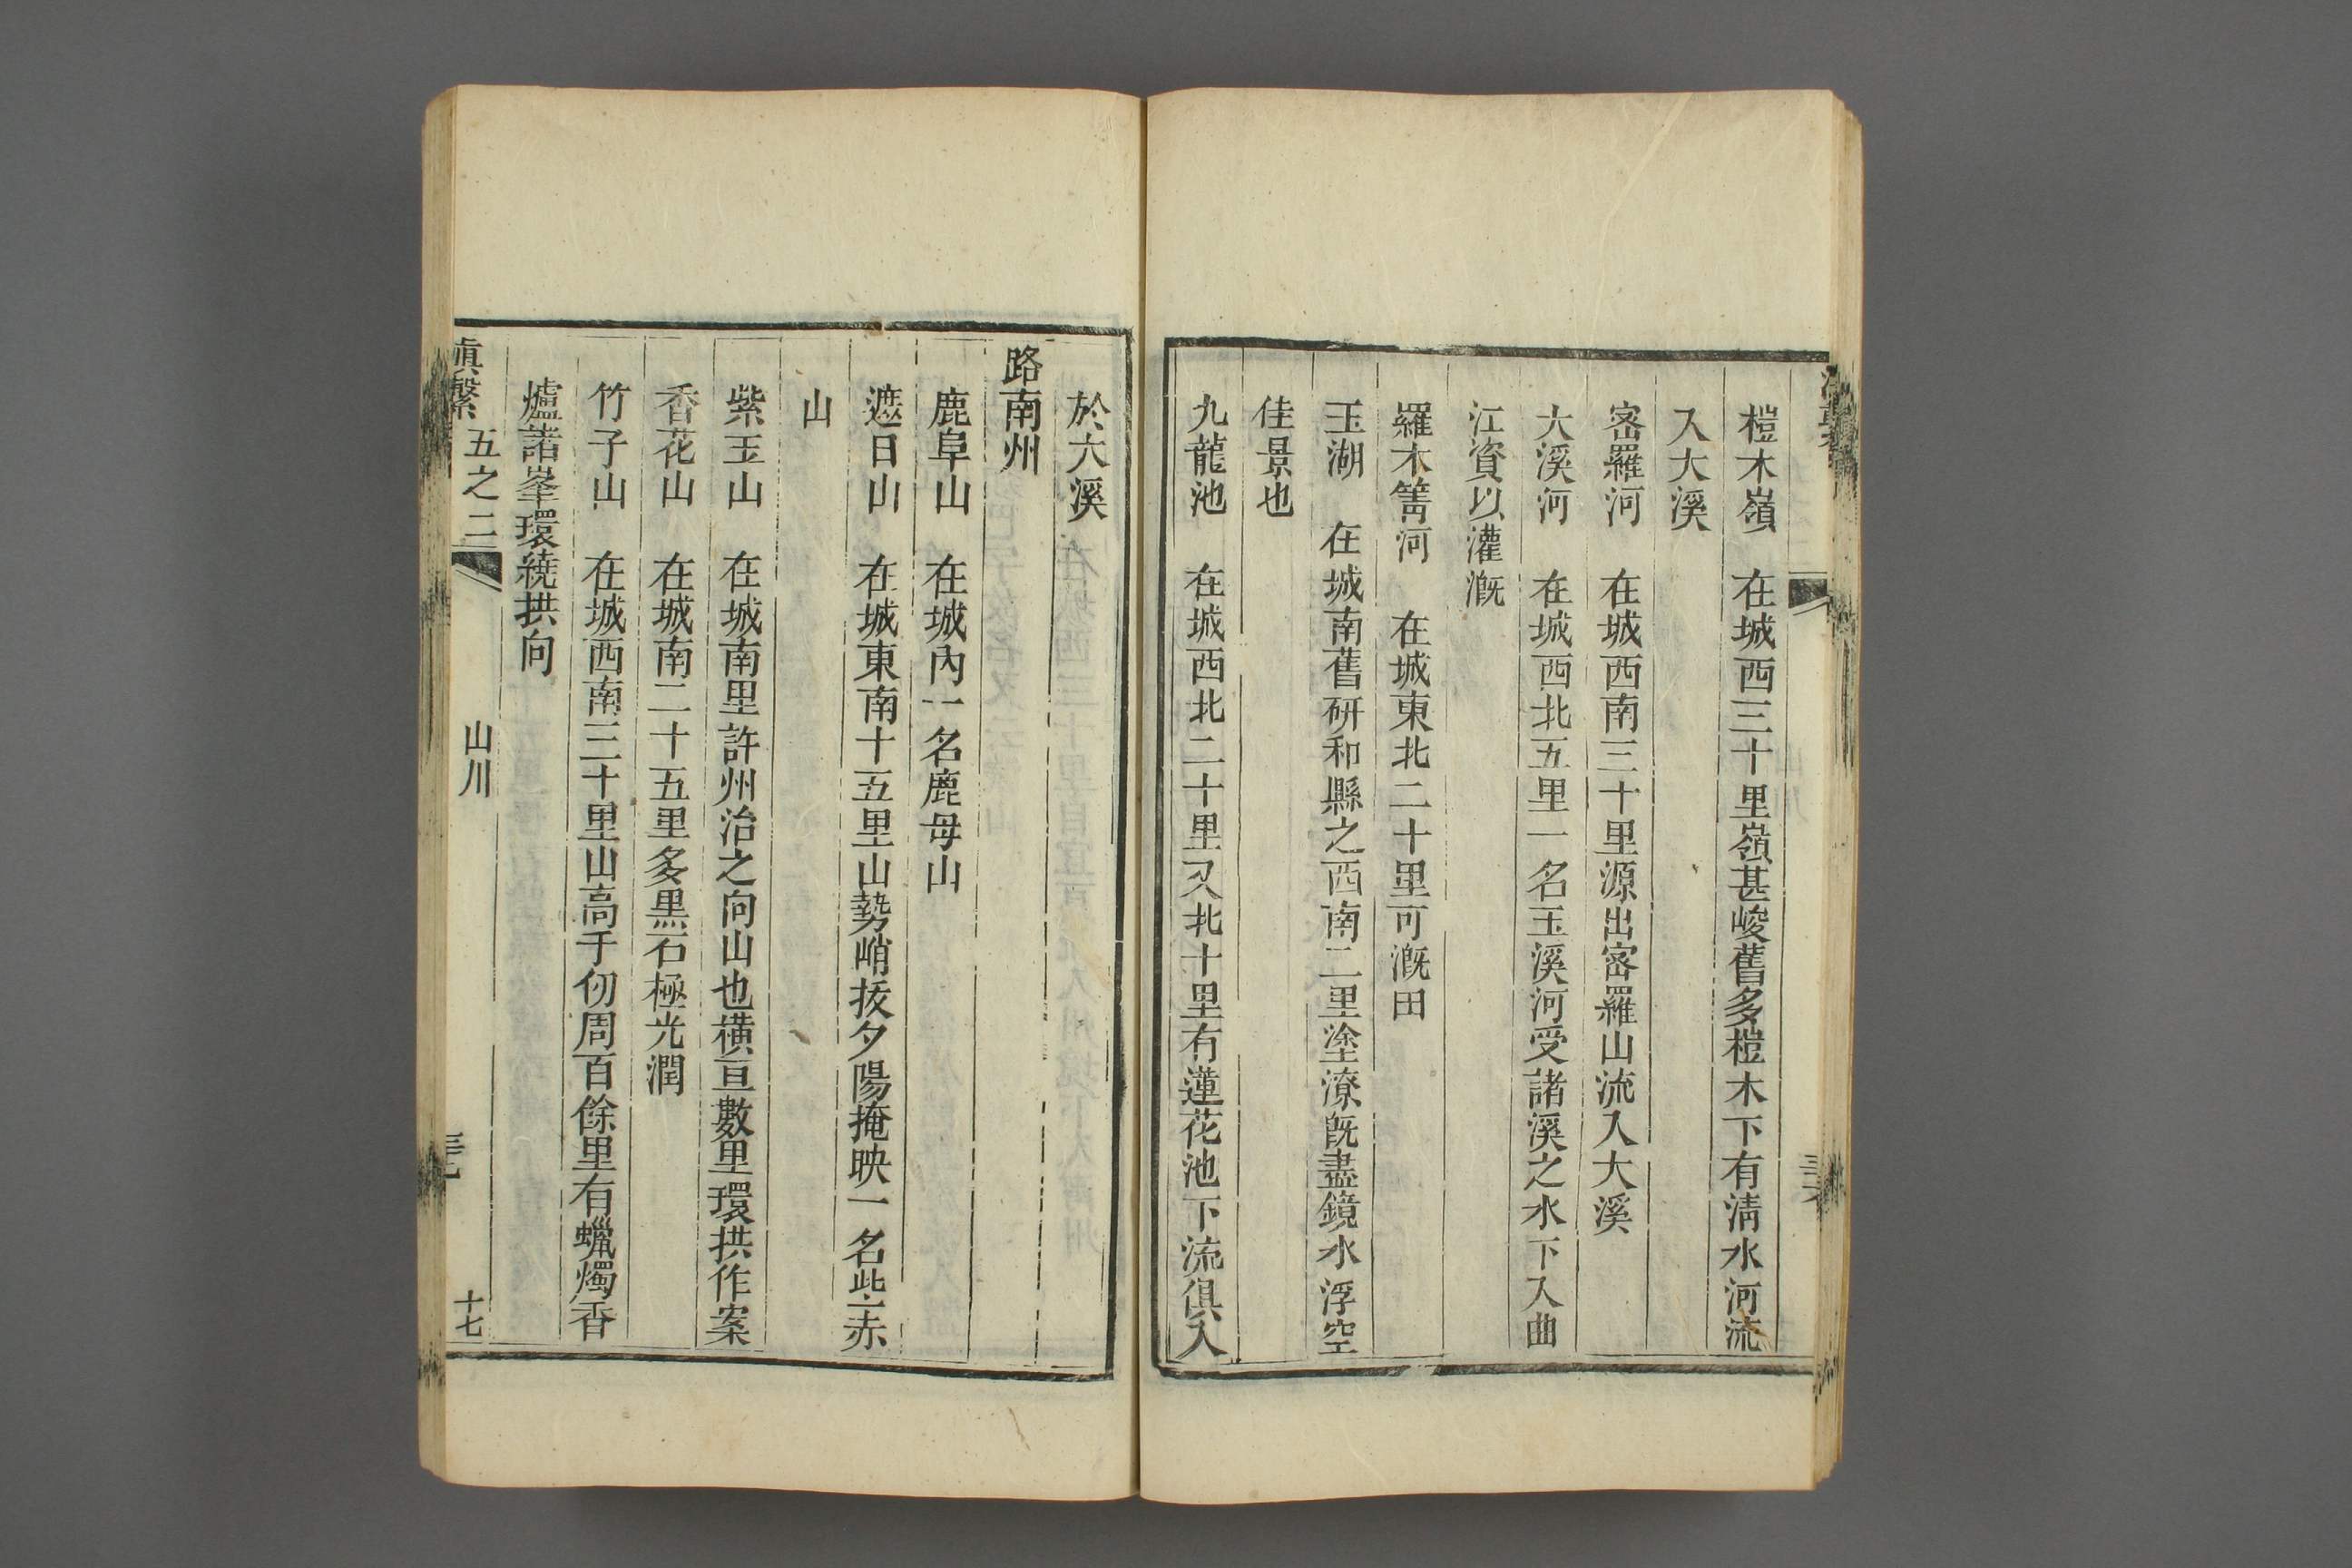 榿木嶺　在城西三十里嶺甚峻舊多榿木下有清水河流
入大溪
密羅河　在城西南三十里源出密羅山流入大溪
大溪河　在城西北五里一名玉溪河受諸溪之水下入曲
江資以灌漑
羅木箐河　在城東北二十里可漑田
玉湖　在城南舊研和縣之西南二里塗潦旣盡鏡水浮空
佳景也
九龍池　在城西北二十里又北十里有蓮花池下流俱入
於大溪
路南州
鹿阜山　在城內一名鹿母山
遮日山　在城東南十五里山勢峭拔夕陽掩映一名些赤
山
紫玉山　在城南里許州治之向山也橫亘數里環拱作案
香花山　在城南二十五里多黑石極光潤
竹子山　在城西南三十里山高千仞周百餘里有蠟燭香
爐諸峯環繞拱向
滇繫　五之二　山川　十七